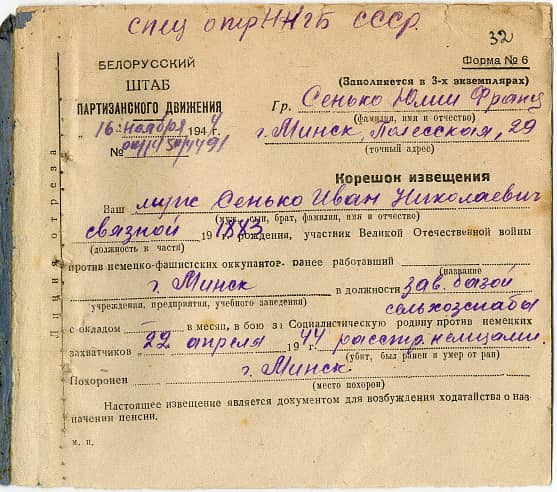 спец отр НКГБ СССР.
32
БЕЛОРУССКИЙ
ШТАБ
ПАРТИЗАНСКОГО ДВИЖЕНИЯ
"16" ноября 1944
№
Форма № 6
(Заполняется в 3-х экземплярах)
Гр. Сенько Юлии Франц
(фамилия, имя и отчество)
г. Минск, Полесская, 29
(точный адрес)
Корешок извещения
Ваш муж Сенько Иван Николаевич
(муж, сын, брат, фамилия, имя и отчество)
связной 1883 рождения, участник Великой Отечественной войны
(должность и части)
против немецко-фашистских оккупантов. ранее работавший
(название
г. Минск в должности зав. базой
учреждения, предприятия, учебного заведения)
сельхозснаба
с окладом в месяц, в бою за Социалистическую родину против немецких
захватчиков 22 апреля 1944 расстр. немцами.
(убит, был ранен и умер от ран)
Похоронен г. Минск
(место похорон)
Настоящее извещение является документом для возбуждения ходатайства о наз
начении пенсии.
м. п.
Линия отреза